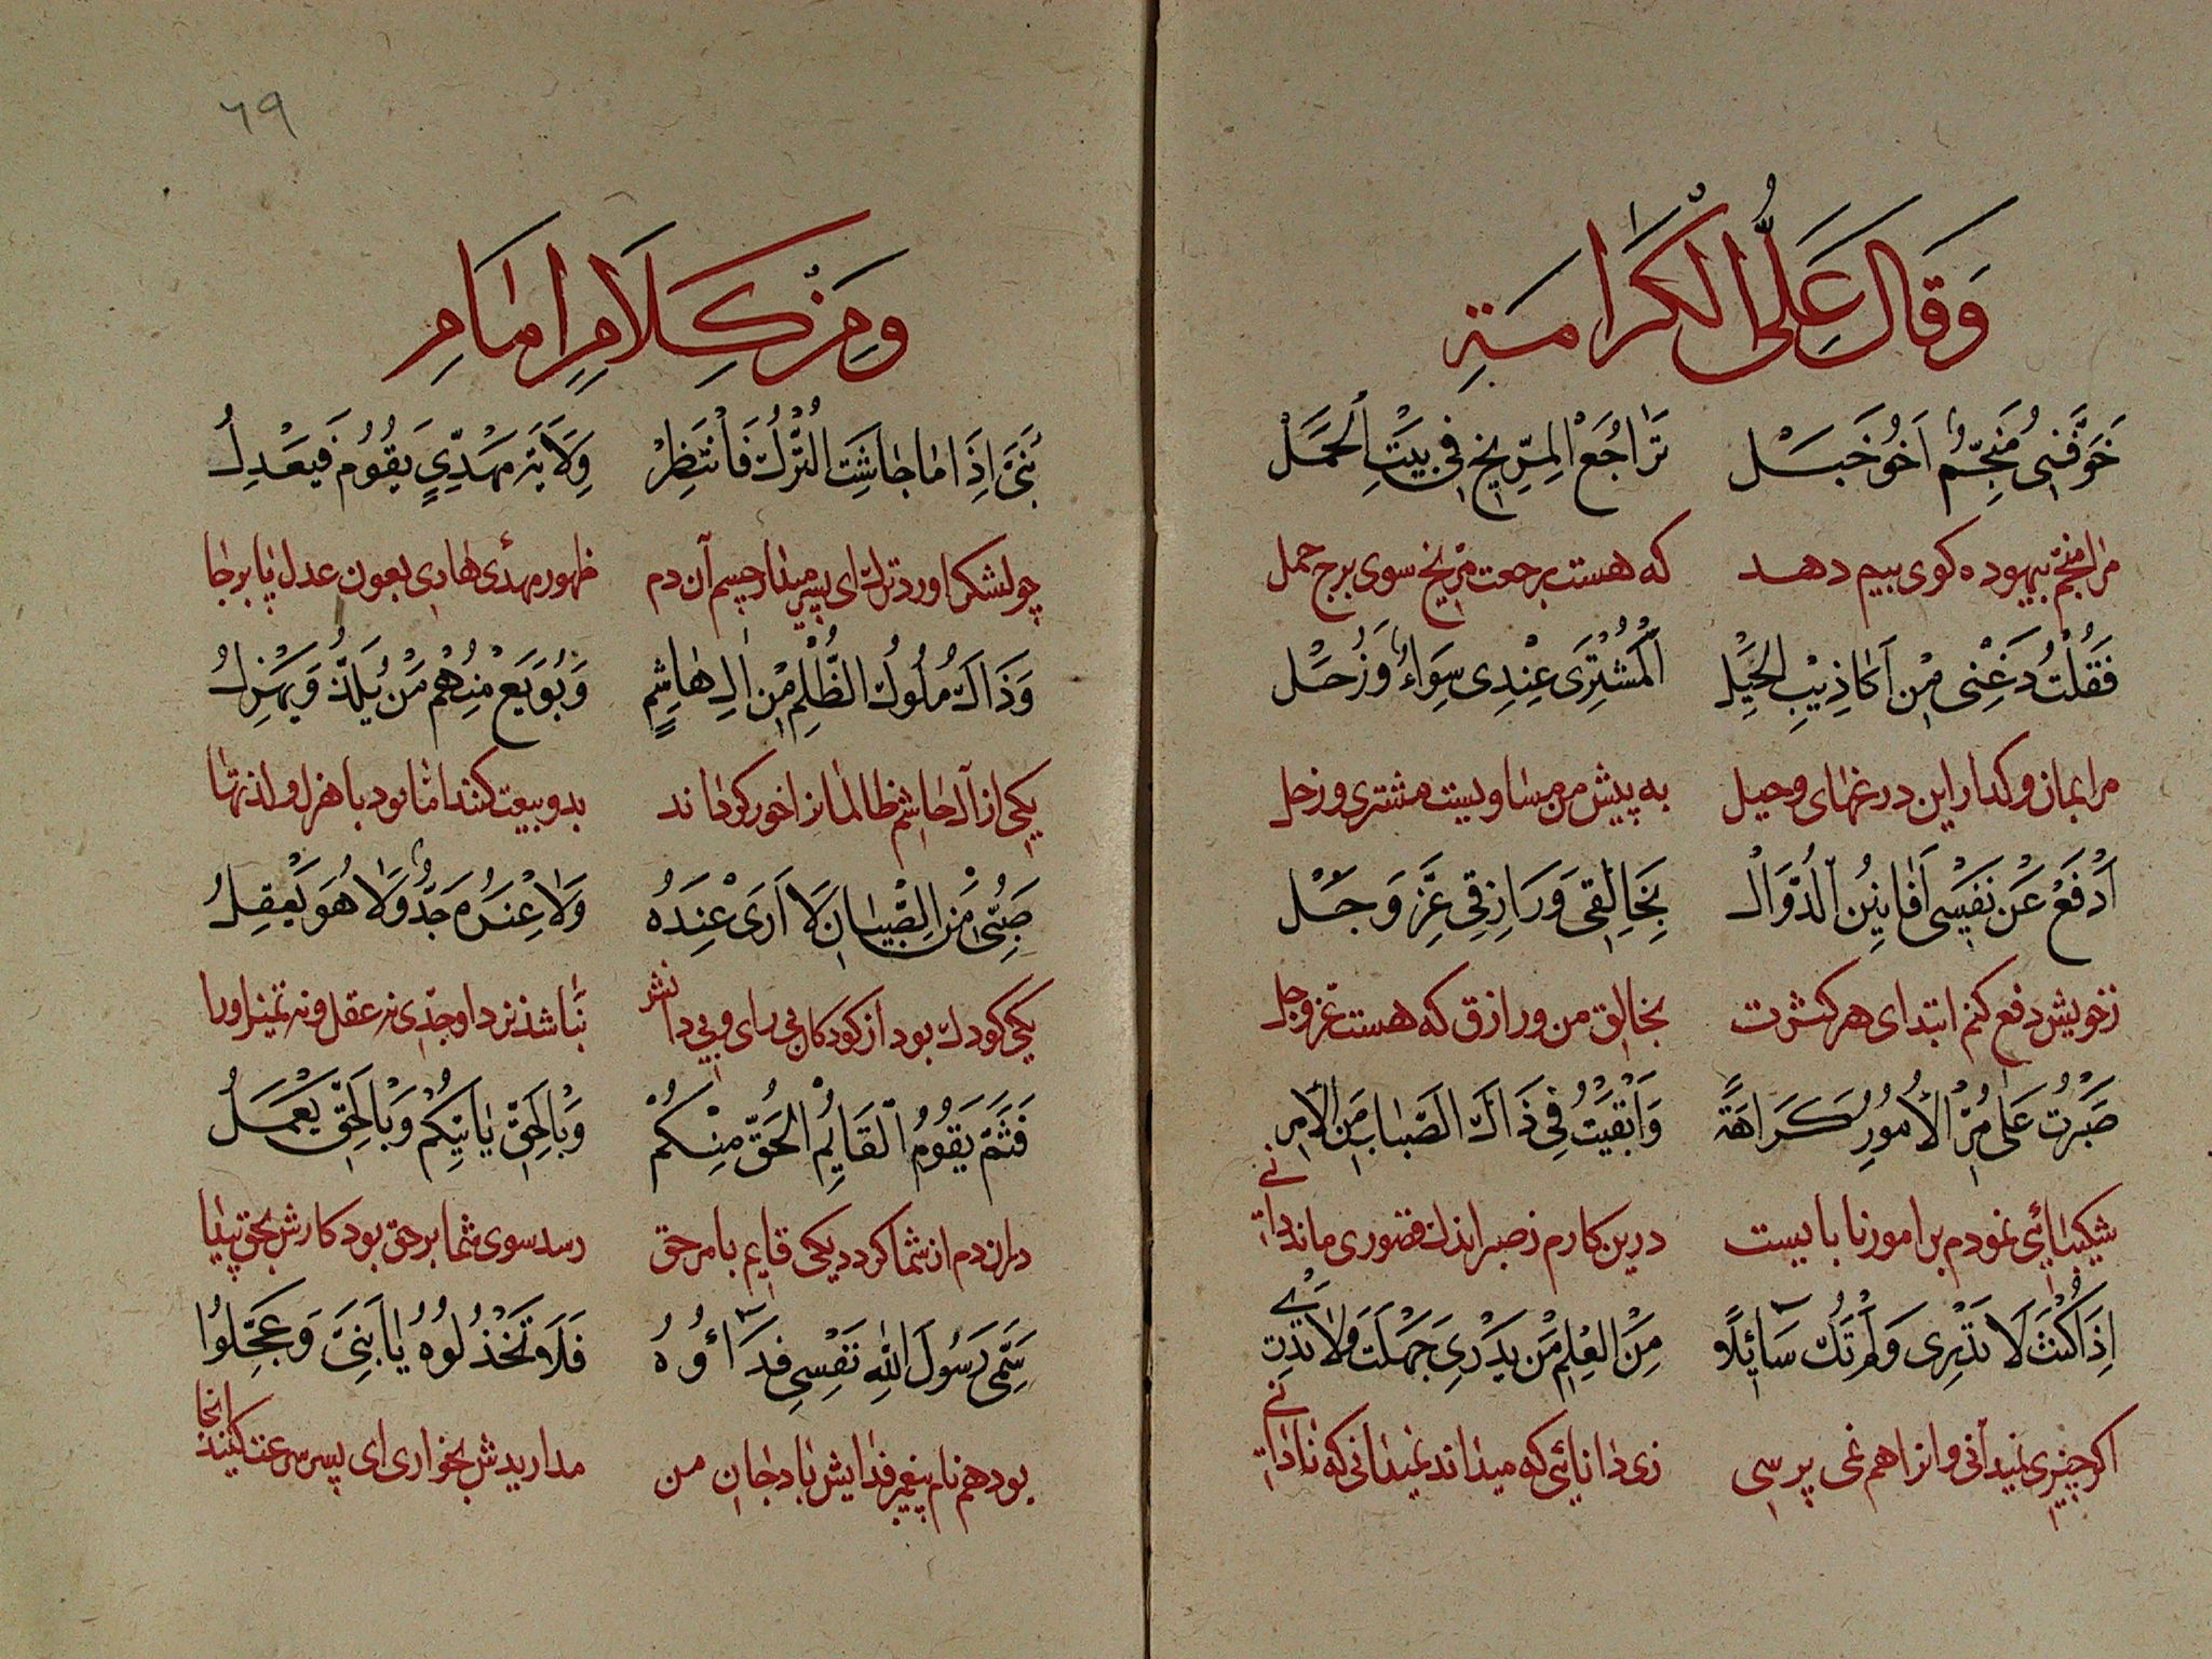 وَقَالَ عَلَى الْكَرَامَةِ
خَوَّفَنِى مُنَجِّمٌ اَخُو خَبَلْ تَرَاجُعَ الْمِرِّيخِ فِى بَيْتِ الْحَمَلْ
مرا منجم بیهوده کوی بیم دهد که هست برجعت مریخ سوی برج حمل
فَقُلْتُ دَعْنِى مِنْ اَكَاذِيْبِ الْحِيَلِ اَلْمُشْتَرِى عِنْدِى سَوَاءٌ وَزُحَلْ
مرا بمان و کذار این درغهای و حیل به پیش من مساویست مشتری و زحل
اَدْفَعُ عَنْ نَفْسِى اَفَانِيْنَ الدُّوَلْ بِخَالِقِى وَرَازِقِى عَزَّ وَجَلْ
ز خویش دفع کنم ابتدای هر بخالق من و رازق که هست عز و جل
صَبَرْتُ عَلَى مُرِّ الْاُمُوْرِ كَرَاهَةً وَاَبْقَيْتُ فِى ذَاكَ الصَّبَابَ مِنَ الْاَمْرِ
شکیبائی نمودم بر امور نا بایست درین کارم ز صبر اندک قصوری ماند
اِذَا كُنْتَ لَا تَدْرِى وَلَمْ تَكُ سَائِلًا مِنَ الْعِلْمِ مَنْ يَدْرِى جَهِلْتَ وَلَا تَدْرِى
اکر چیزی نمیدانی و انرا هم نمی پرسی زی دانائی که میداند نمیدانی که نادانی
٦٩
وَمِنْ كَلَامِ اِمَامِ
بُنَىَّ اِذَا مَا جَاشَتِ التُّرْكُ فَانْتَظِرْ وِلَايَةَ مَهْدِىٍّ يَقُوْمُ فَيَعْدِلُ
چو لشکر اورد ترک ای پسر میدار چشم آن دم ظهور مهدئ هادی بعون عدل پا برجا
وَذَاكَ مُلُوْكُ الظُّلْمِ مِنْ اٰلِ هَاشِمٍ وَبُوْيِعَ مِنْهُمْ مَنْ يَلَذُّ وَيَهْزِلُ
یکی از آل هاشم ظالمانرا خور کرداند بدو بیعت کنند اما بود با هزل و لذتها
صَبِىٌّ مِنَ الصِّبْيَانِ لَا رَأْىَ عِنْدَهُ وَلَا عِنْدَهُ جَدٌّ وَلَا هُوَ يَعْقِلُ
یکی کودک بود از کودکان بی رای و بی دانش نباشد نزد او جدی نه عقل و نه تمیز اورا
فَثَمَّ يَقُوْمُ الْقَائِمُ الْحَقُّ مِنْكُمْ وَبِالْحَقِّ يَأْتِيْكُمْ وَبِالْحَقِّ يَعْمَلُ
دران دم از شما کردد یکی قایم بامر حق رسد سوی شما بر حق بود کارش بحق
سَمِىُّ رَسُوْلِ اللّٰهِ نَفْسِى فِدَاؤُهُ فَلَا تَخْذُلُوْهُ يَا بَنِىَّ وَعَجِّلُوْا
بود هم نام پیغمبر فدایش باد جان من مداریدش بخواری ای پسر سرعت کنید انجا